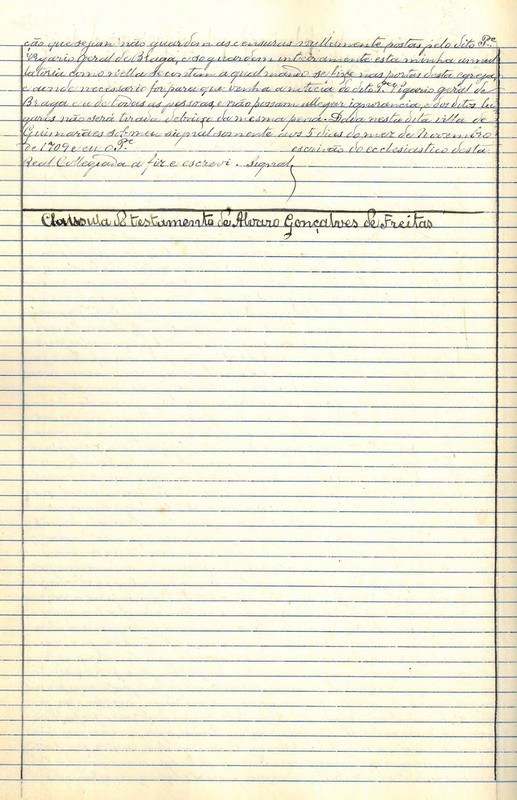 ção que sejam não guardem as censuras nullamente postas pelo dito Rdo
Vigario Geral de Braga, e só guardem inteiramente esta minha annul
latoria como nella se contem a qual mando se fixe nas portas desta egreja,
e aonde necessario for para que venha á noticia do dito Rdo Vigario geral de
Braga e de todas as pessoas e não possam allegar ignorancia, e dos ditos lu
gares não será tirada debaixo da mesma pena. Dada nesta dita villa de
Guimarães sob meu signal somente aos 5 dias do mez de Novembro
de 1709 e eu o Pe escrivão do ecclesiastico desta
Real Collegiada a fiz e escrevi. Signal
Clausula do testamento de Alvaro Gonçalves de Freitas